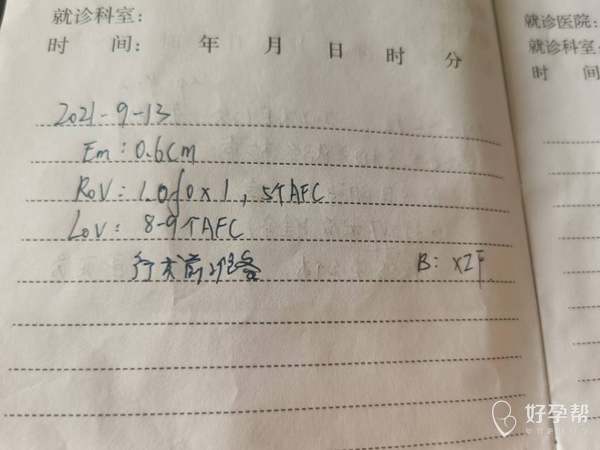 就诊科室:
时 间: 年 月 日 时 分
2021-9-13
Em: 0.6cm
ROV: 1.0×1, 5个AFC
LOV: 8-9个AFC
行术前准备 B: XZF
就诊医院:
就诊科室:
时 间
好孕帮